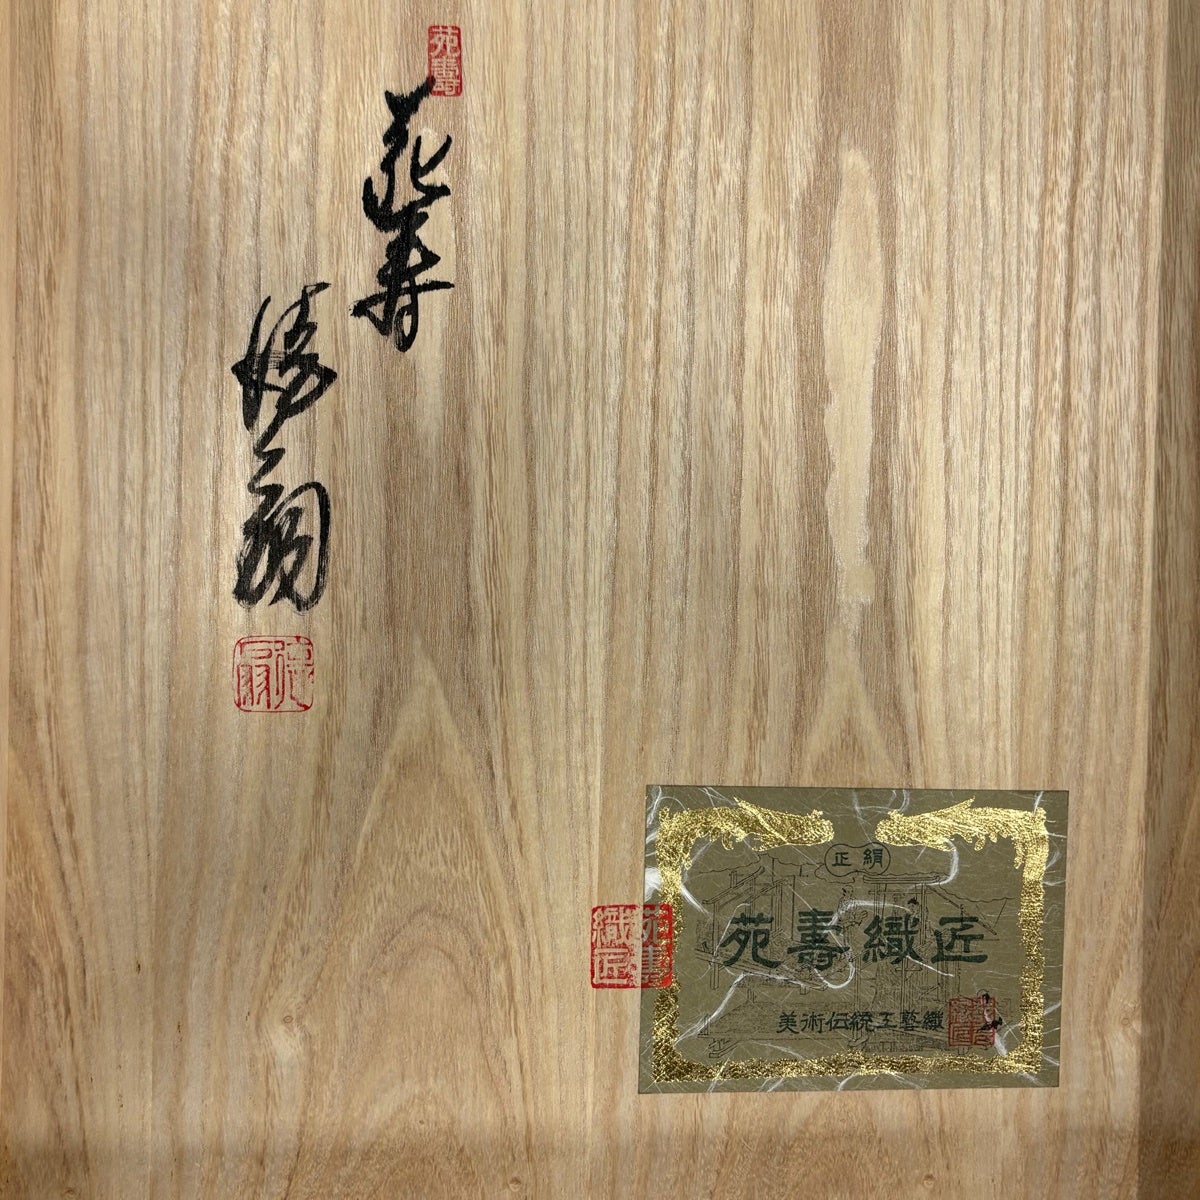 苑壽
苑寿
正絹
苑壽織匠
美術伝統工藝織
苑壽織匠